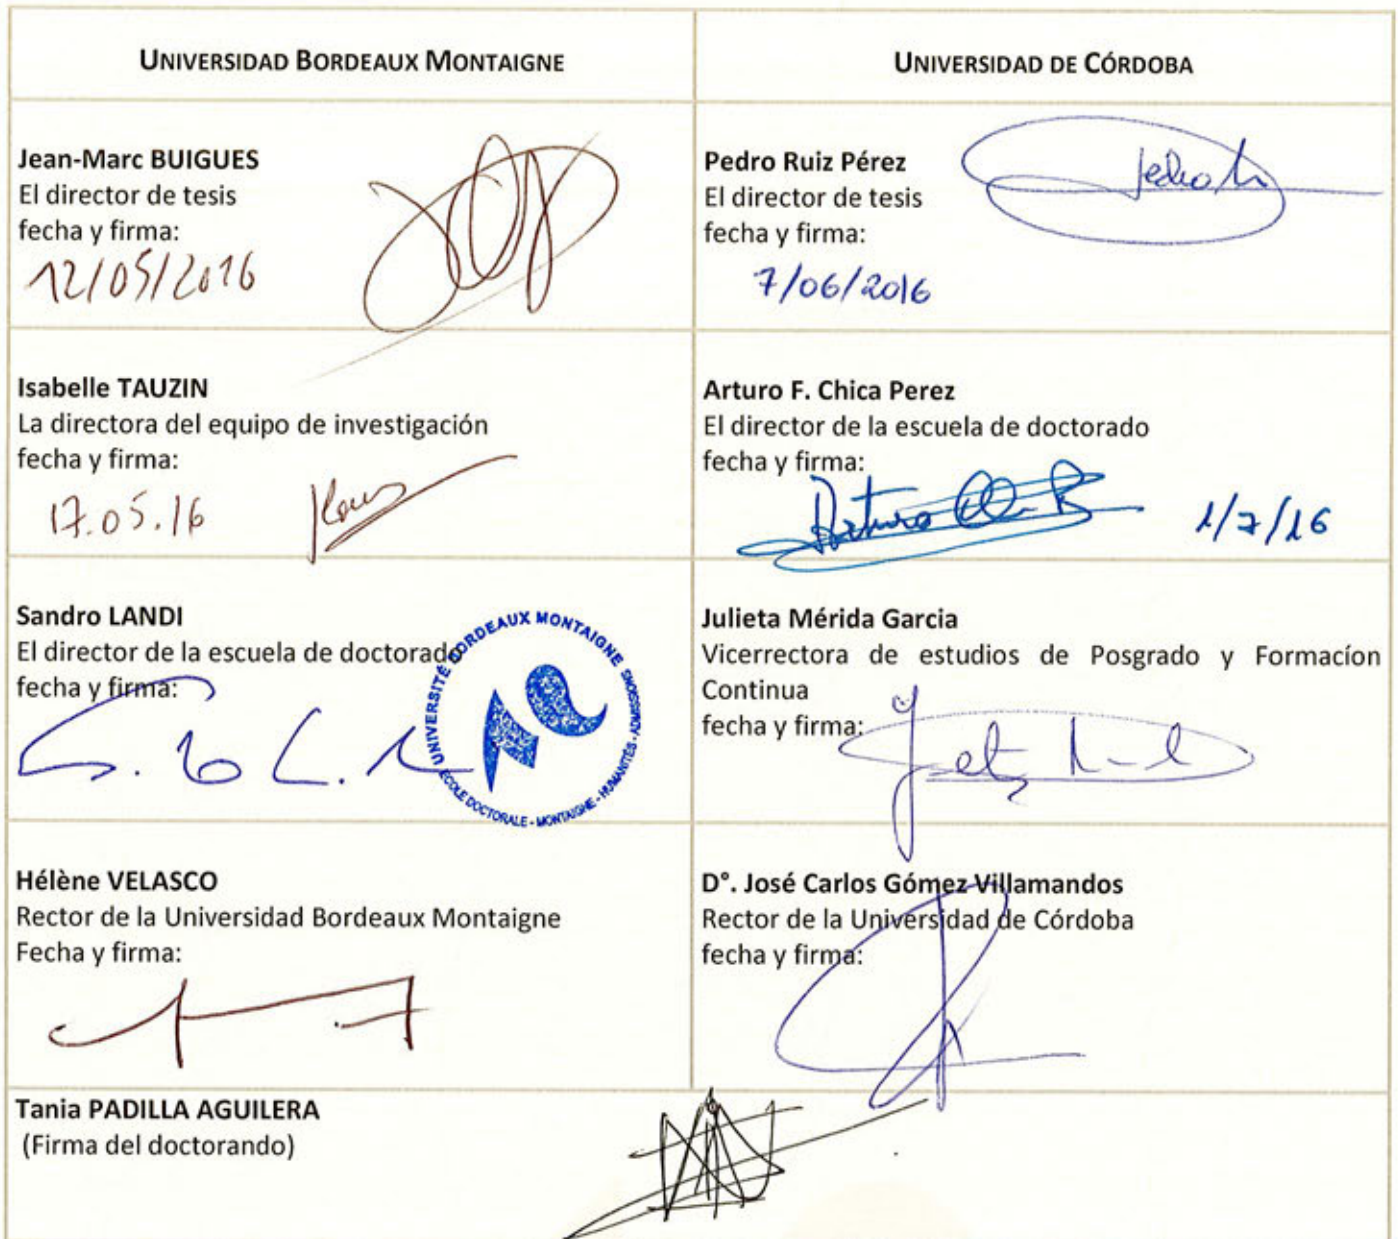 UNIVERSIDAD BORDEAUX MONTAIGNE
UNIVERSIDAD DE CÓRDOBA
Jean-Marc BUIGUES
El director de tesis
fecha y firma:
12/05/2016
Pedro Ruiz Pérez
El director de tesis
fecha y firma:
7/06/2016
Isabelle TAUZIN
La directora del equipo de investigación
fecha y firma:
17.05.16
Arturo F. Chica Perez
El director de la escuela de doctorado
fecha y firma:
Arturo
1/7/16
Sandro LANDI
El director de la escuela de doctorado
fecha y firma:
UNIVERSITÉ BORDEAUX MONTAIGNE
ECOLE DOCTORALE - MONTAIGNE - HUMANITÉS -
Julieta Mérida Garcia
Vicerrectora de estudios de Posgrado y Formacíon
Continua
fecha y firma:
Hélène VELASCO
Rector de la Universidad Bordeaux Montaigne
Fecha y firma:
D°. José Carlos Gómez Villamandos
Rector de la Universidad de Córdoba
fecha y firma:
Tania PADILLA AGUILERA
(Firma del doctorando)